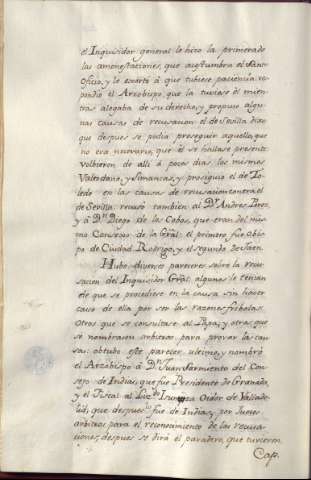 el Inquisidor general le hizo la primera de
las amonestaciones, que acostumbra el Santo
Oficio, y le exortó á que tubiese paciencia, re-
pondió el Arzobispo, que la tuviese el mien-
tras alegaba de su derecho, y propuso algu-
nas causas de recusacion: el de Sevilla dixo
que despues se podia proseguir aquello, que
no era necesario, que él se hallase presente.
Volbieron de alli á pocos dias los mismos
Valtodano, y Simancas, y prosiguió el de To-
ledo en las causas de recusacion contra el
de Sevilla, recusó tambien al Dr. Andres Perez,
y á Dn. Diego de los Cobos, que eran del mis-
mo Consejo de la Gral: el primero fue Obis-
po de Ciudad Rodrigo, y el segundo de Jaen.
Hubo diversos pareceres sobre la recu-
sacion del Inquisidor Gral: algunos le tenian
de que se procediese en la causa sin hacer
caso de ella por ser las razones fribolas.
Otros que se consultase al Papa; y otros que
se nombrasen arbitros para provar la cau-
sa: obtubo este parecer ultimo, y nombró
el Arzobispo á Dn. Juan Sarmiento del Con-
sejo de Indias, que fue Presidente de Granada,
y el Fiscal al Lizdo. Isunza Oidor de Vallado-
lid, que despues lo fue de Indias, y por Jueces
arbitros para el reconocimiento de las recusa-
ciones, despues se dirá el paradero, que tuvieron.
Cap.